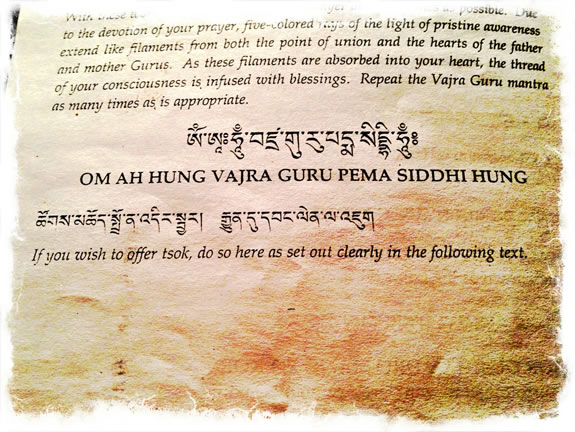 With these as possible. Due
to the devotion of your prayer, five-colored rays of the light of pristine awareness
extend like filaments from both the point of union and the hearts of the father
and mother Gurus. As these filaments are absorbed into your heart, the thread
of your consciousness is infused with blessings. Repeat the Vajra Guru mantra
as many times as is appropriate.
ཨོཾ་ཨཱཿཧཱུྃ་བཛྲ་གུ་རུ་པདྨ་སིདྡྷི་ཧཱུྃ༔
OM AH HUNG VAJRA GURU PEMA SIDDHI HUNG
ཚོགས་མཆོད་སྤྲོ་ན་འདིར་སྦྱར། རྒྱུན་དུ་དབང་ལེན་ལ་འཇུག
If you wish to offer tsok, do so here as set out clearly in the following text.